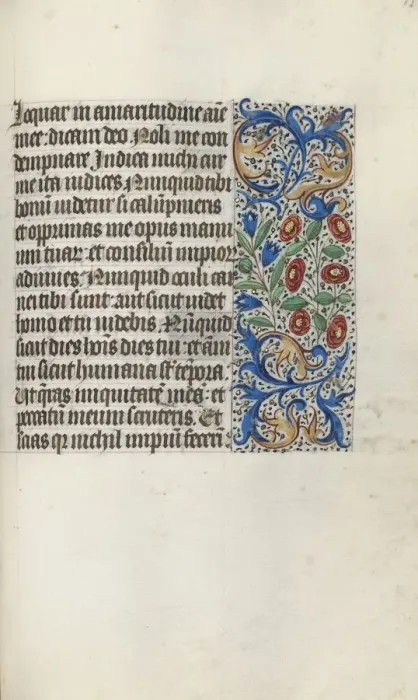 loquar in amaritudine aīe
mee. dicam deo Noli me con
dempnare Indica michi cur
me ita iudices Nunquid tibi
bonū uidetur si calūpnieris
et opprimas me opus manu
um tuaꝝ et consiliū impioꝝ
adiuues. Nunquid oculi car
nei tibi sunt aut sicut uidet
homo et tu uidebis. Nūquid
sicut dies hoīs dies tui et āni
tui sicut humana sūt tēpora
Ut q̄ras iniquitatē meā et
peccatū meum scruteris. Et
scias qꝛ nichil impiū fecerī.